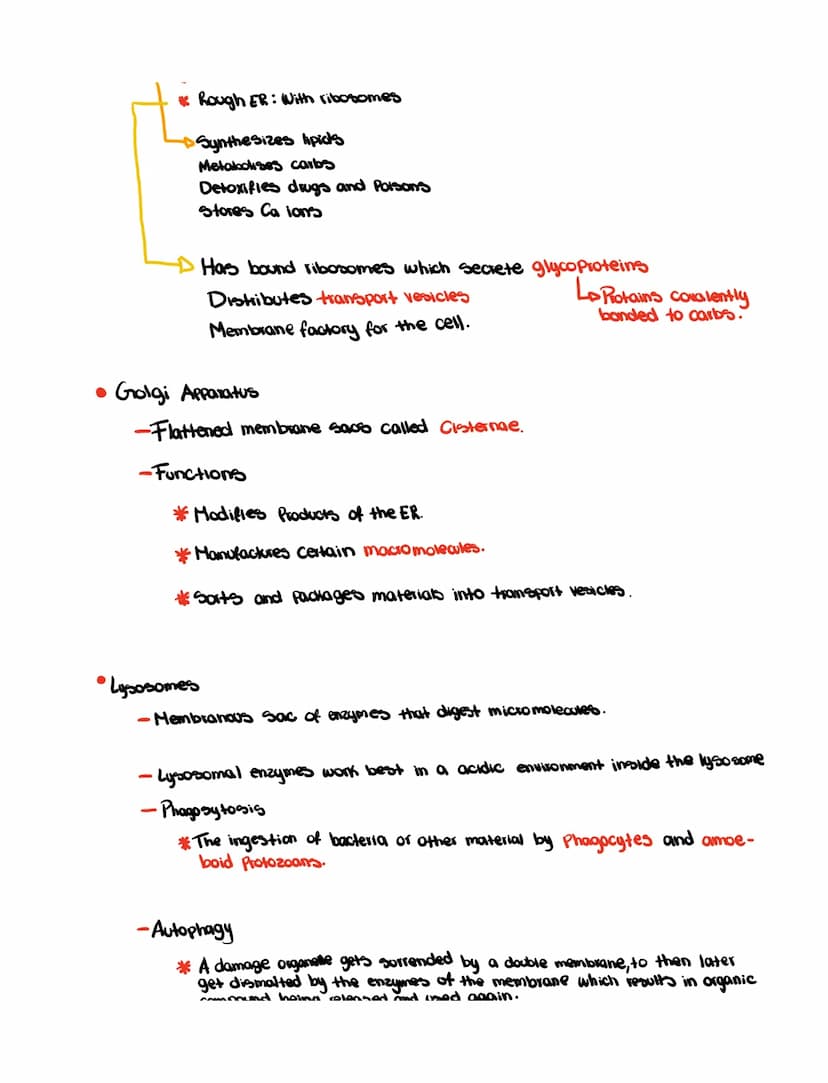 * Rough ER: With ribosomes
Synthesizes lipids
Metabolises carbs
Detoxifies drugs and Poisons
Stores Ca ions
Has bound ribosomes which secrete glycoproteins
Distributes transport vesicles
↳ Protains covalently
bonded to carbs.
Membrane factory for the cell.
• Golgi Apparatus
- Flattened membrane sacs called Cisternae.
- Functions
* Modifies Products of the ER.
* Manufactures certain macromolecules.
* Sorts and Packages materials into transport vesicles.
• Lysosomes
- Membranous sac of enzymes that digest micromolecules.
- Lysosomal enzymes work best in a acidic environment inside the lysosome
- Phagosytosis
* The ingestion of bacteria or other material by Phagocytes and amoe-
boid Protozoans.
- Autophagy
* A damage organelle gets surrended by a double membrane, to then later
get dismalted by the enzymes of the membrane which results in organic
compound being released and used again.